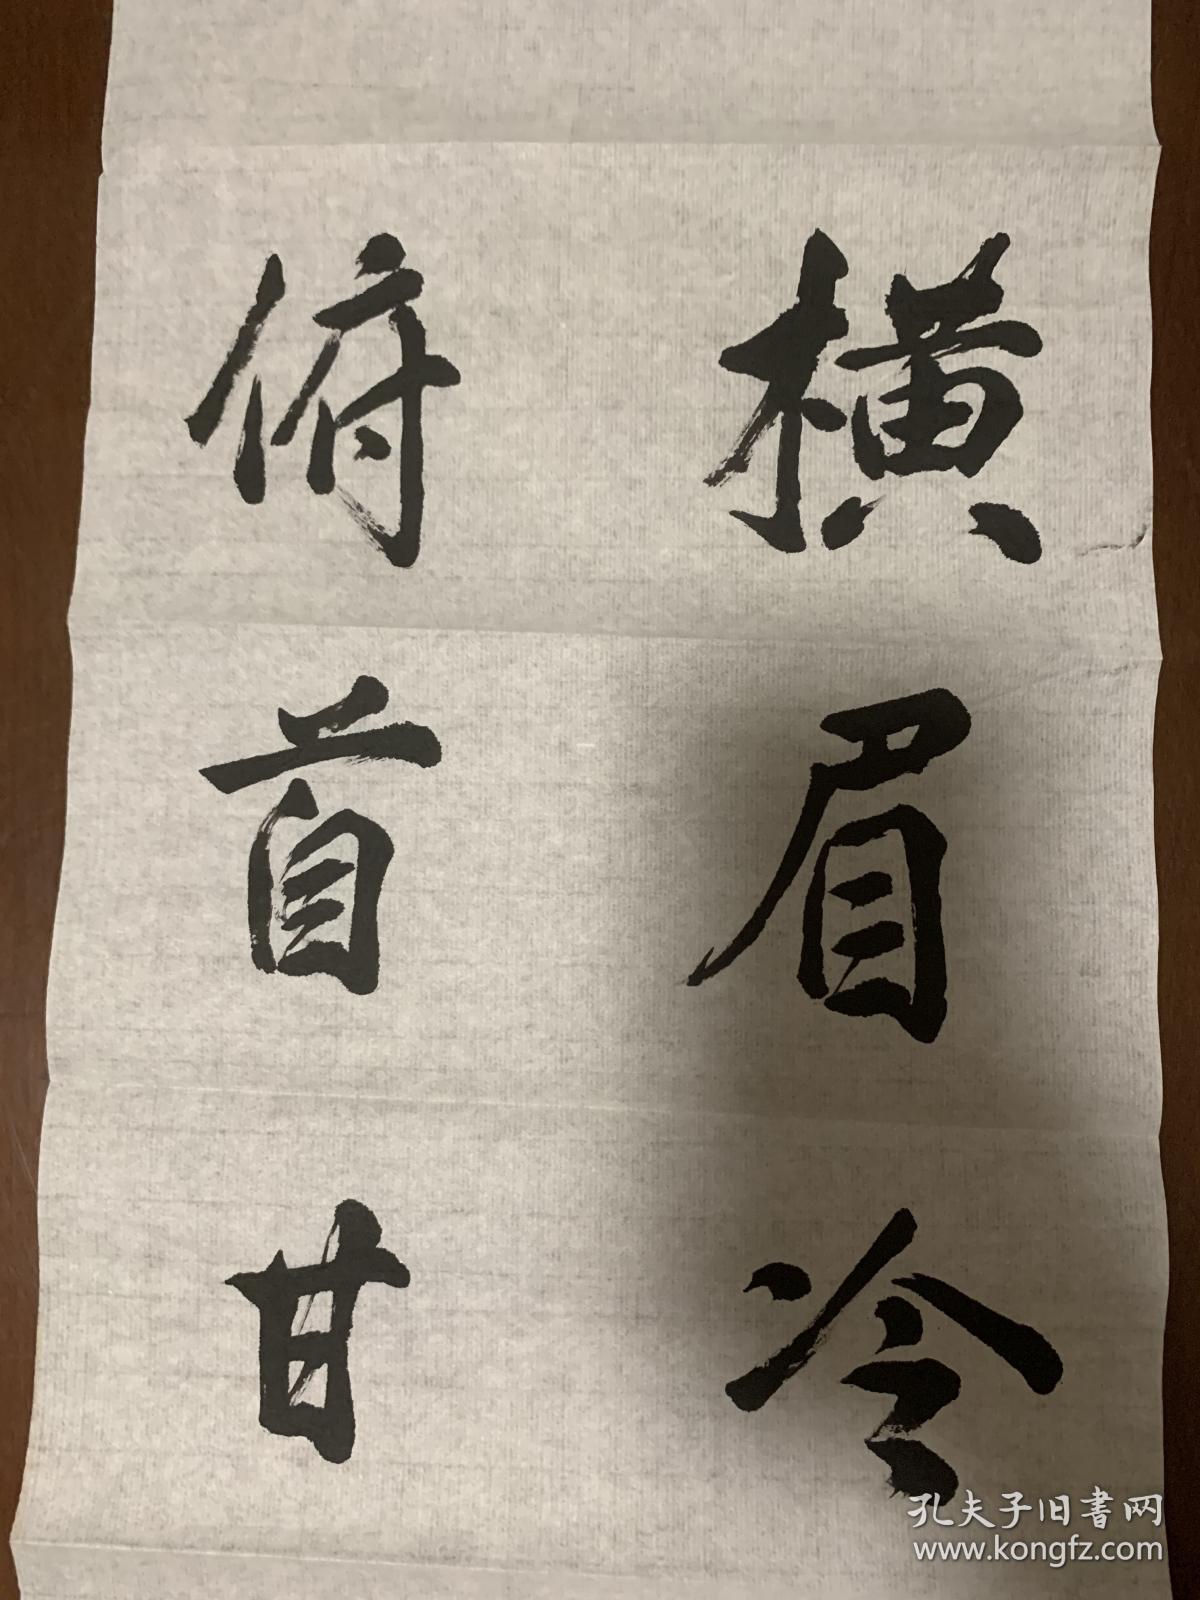 横眉冷
俯首甘
孔夫子旧書网
www.kongfz.com